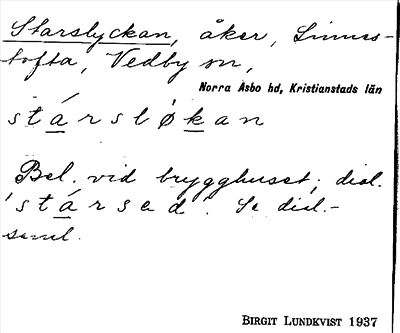 Starslyckan, åker, Linnes-
tofta, Vedby sn,
Norra Åsbo hd, Kristianstads län
stársløkan
Bel. vid brygghuset; dial.
'stársad'. Se dial.-
saml.
BIRGIT LUNDKVIST 1937